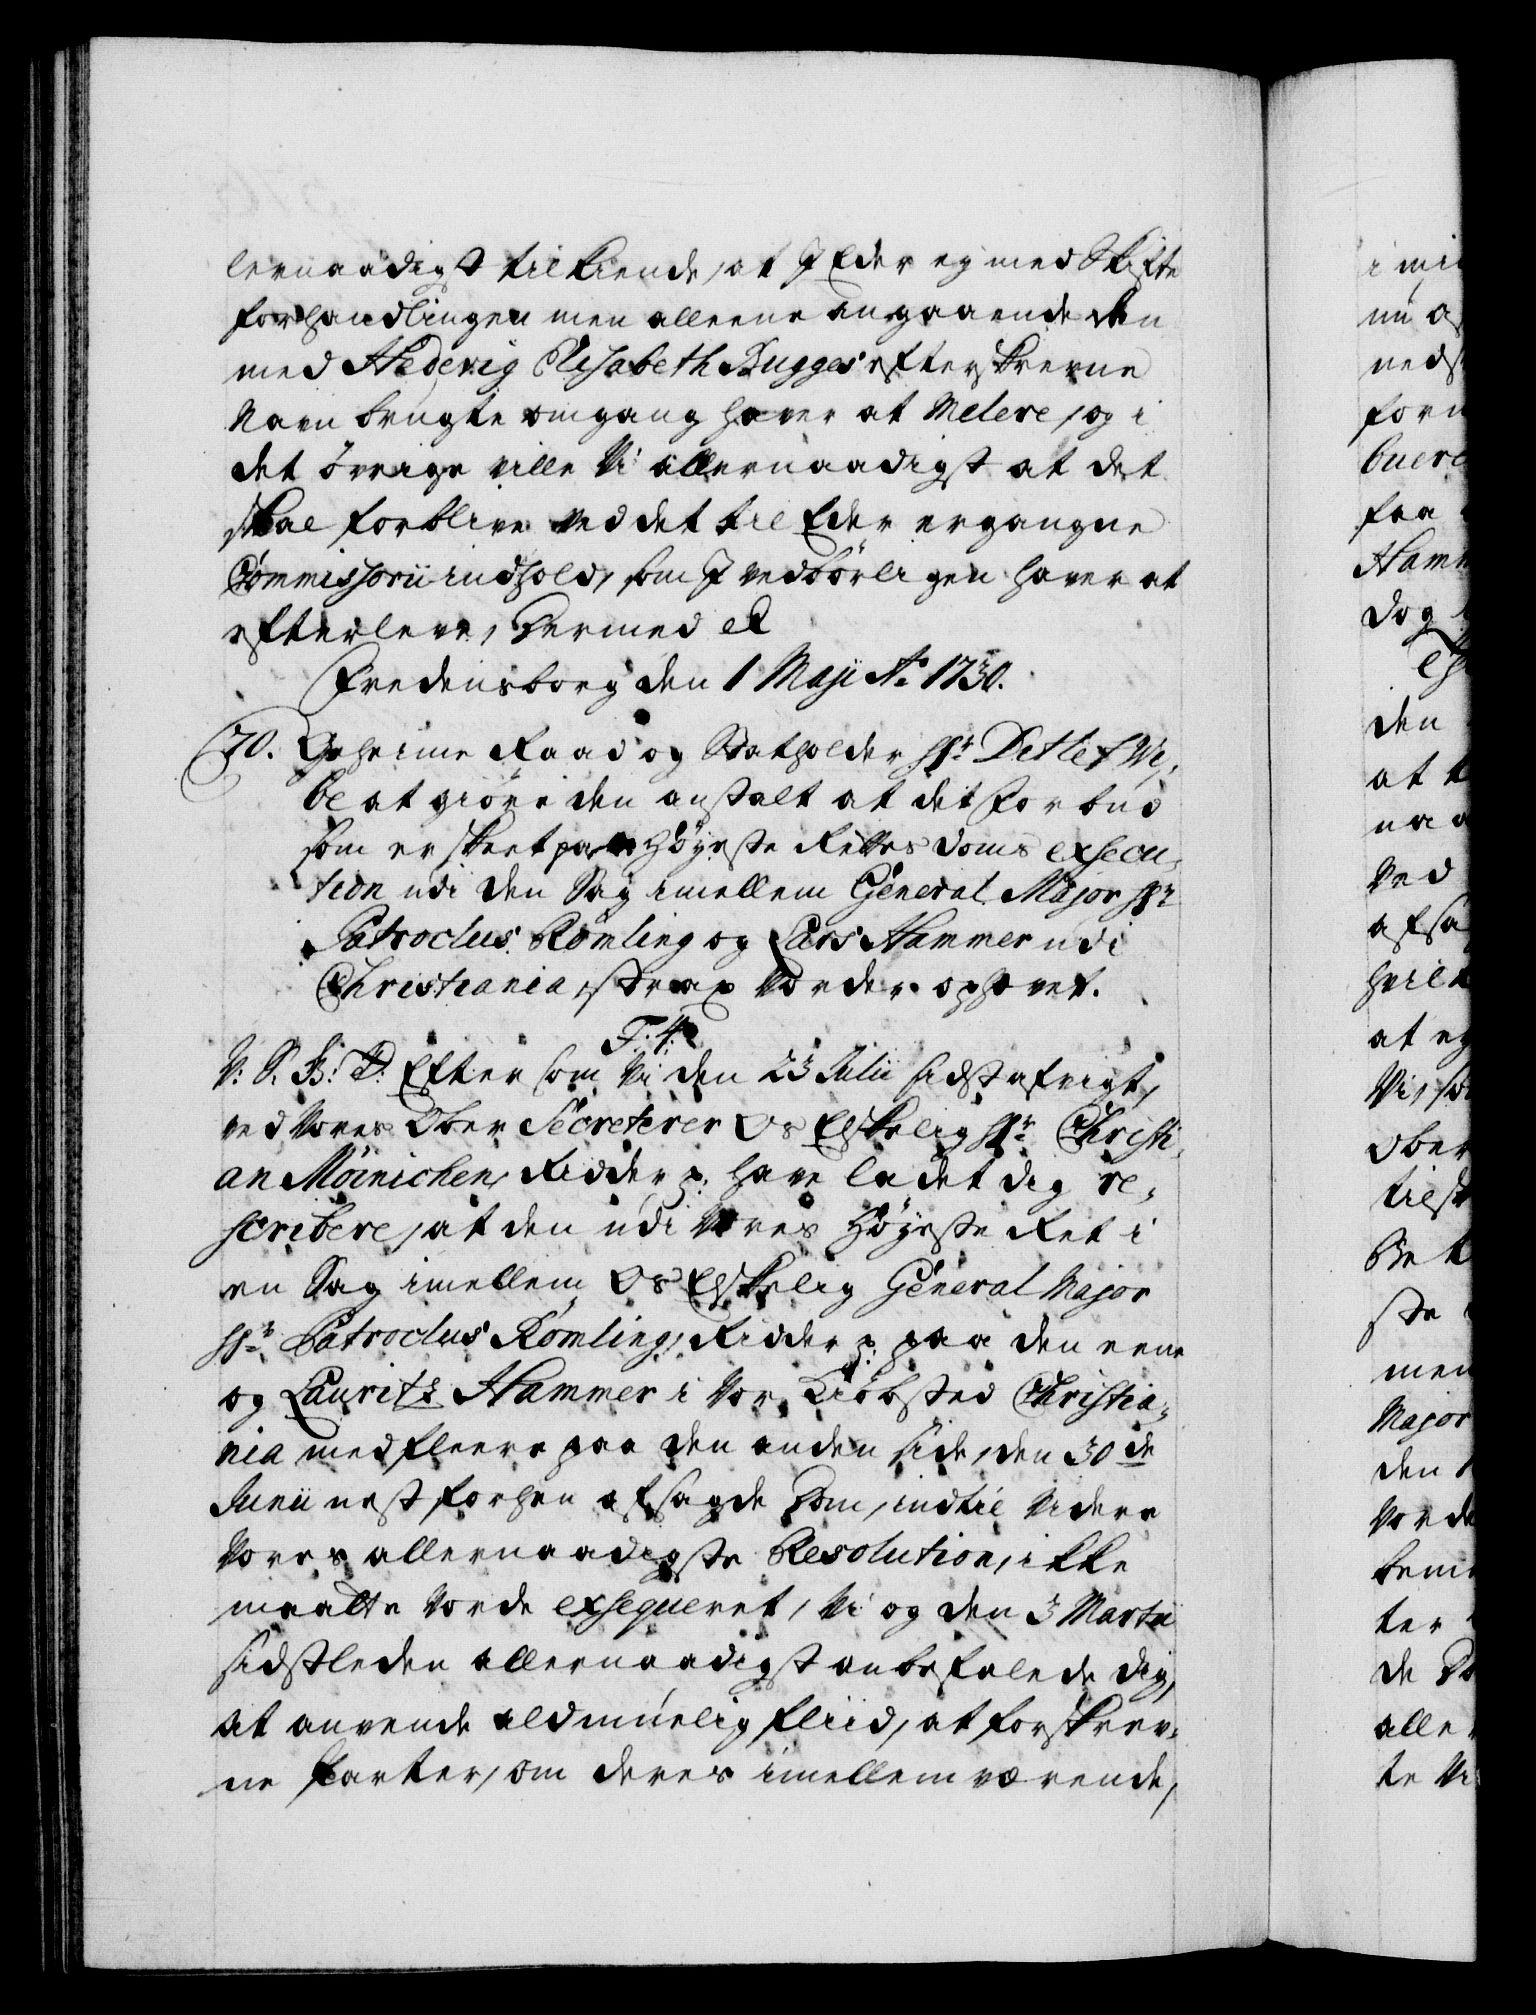 lernaadigst tilkiende, at I Eder ey med Skifte
forhandlingen men alleene angaaende den
med Hedevig Elisabeth Bugges efterskrevne
Navn brugte omgang haver at melere, og i
det øvrige ville Vi allernaadigst at det
skal forblive ved det til Eder ergangne
Commissorii indhold, som I vedbørligen haver at
efterleve, Hermed et
Fredensborg den 1 Maji Ao 1730.
70. Geheime Raad og Statholder Hr. Detlef Wi,
be at giøre den anstalt at det forbud
som er skeet paa Høyeste Rettes doms exsecu,
tion udi den Sag imellem General Major Hr
Patroclus Rømling og Lars Hammer udi
Christiania, strax vorder ophævet.
F: 4.
V: S. G: T: Eftersom Vi den 23 Julii sidst afvigt,
ved Vores Ober Secreterer Os Elskelig Hr. Christi,
an Møinichen, Ridder p: have ladet dig re,
scribere, at den udi Vores Høyeste Ret i
en Sag imellem Os Elskelig General Major
Hr. Patroclus Rømling, Ridder p: paa den eene
og Lauritz Hammer i Vor Kiøbsted Christia,
nia med fleere paa den anden side, den 30de
Junii nest forhen afsagde Dom, indtil Videre
Vores allernaadigste Resolution, ikke
maatte Vorde exseqveret, Vi og den 3 Martii
sidstleden allernaadigst anbefalede dig,
at anvende ald muelig fliid, at forskrev,
ne Parter, om deres imellem værende,